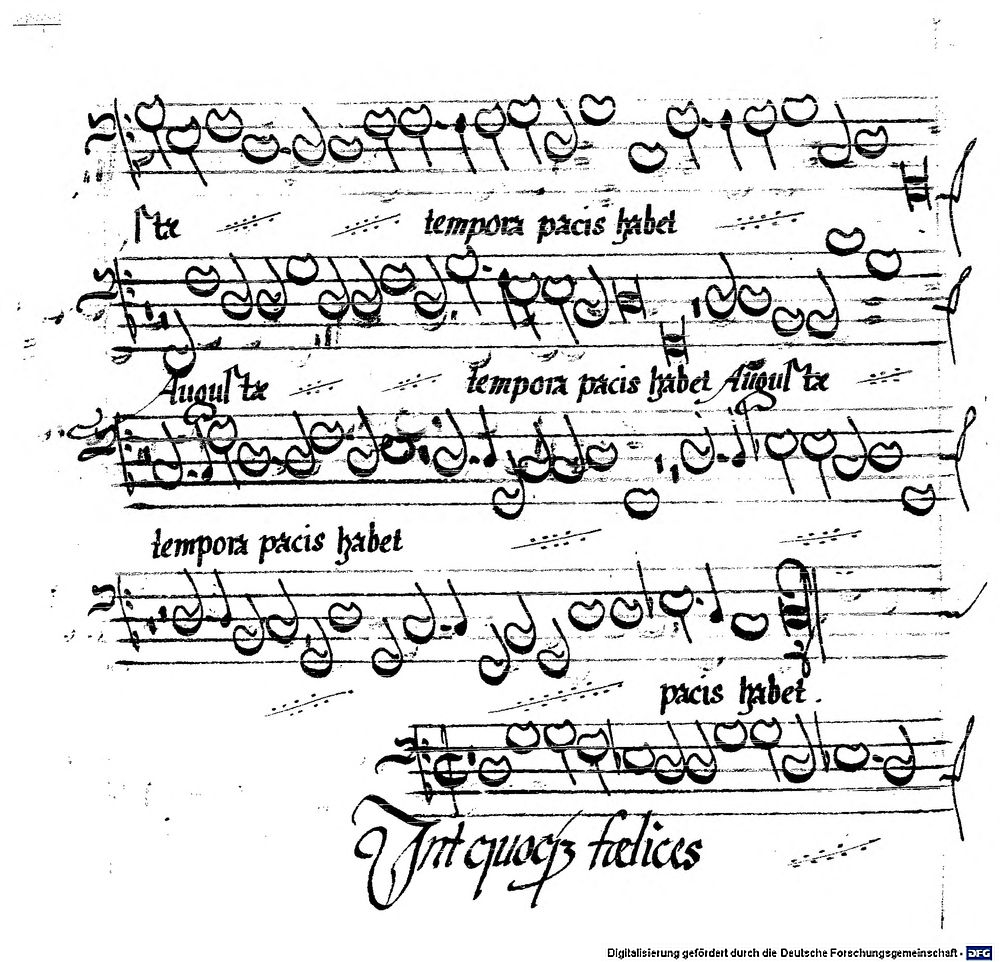 ſtæ tempora pacis habet
Auguſtæ tempora pacis habet Auguſtæ
tempora pacis habet
pacis habet.
Int quoqꝫ fœlices
Digitalisierung gefördert durch die Deutsche Forschungsgemeinschaft - DFG